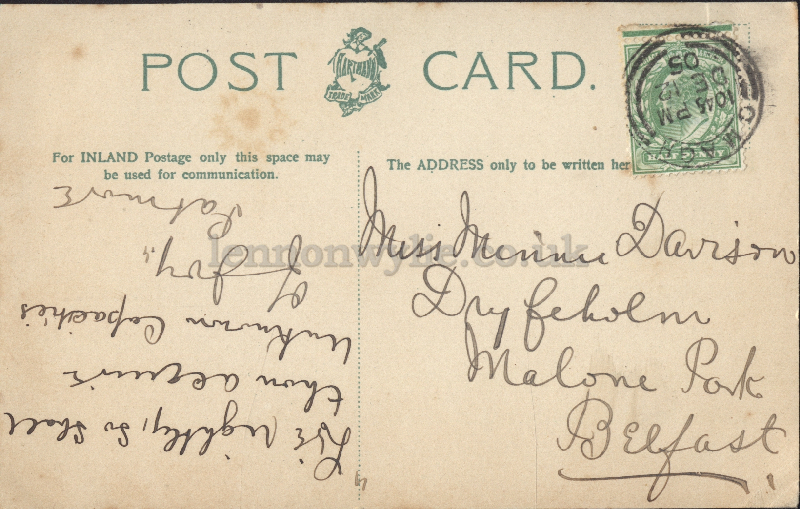 POST CARD.
HARTMANN
TRADE MARK
10.45 PM
DE 12
05
For INLAND Postage only this space may
be used for communication.
The ADDRESS only to be written her
Live rightly, so shall
thou acquire
Unknown Capacities
of Joy."
Patmore
Miss Minnie Davison
Dryfeholm
Malone Park
Belfast
lennonwylie.co.uk